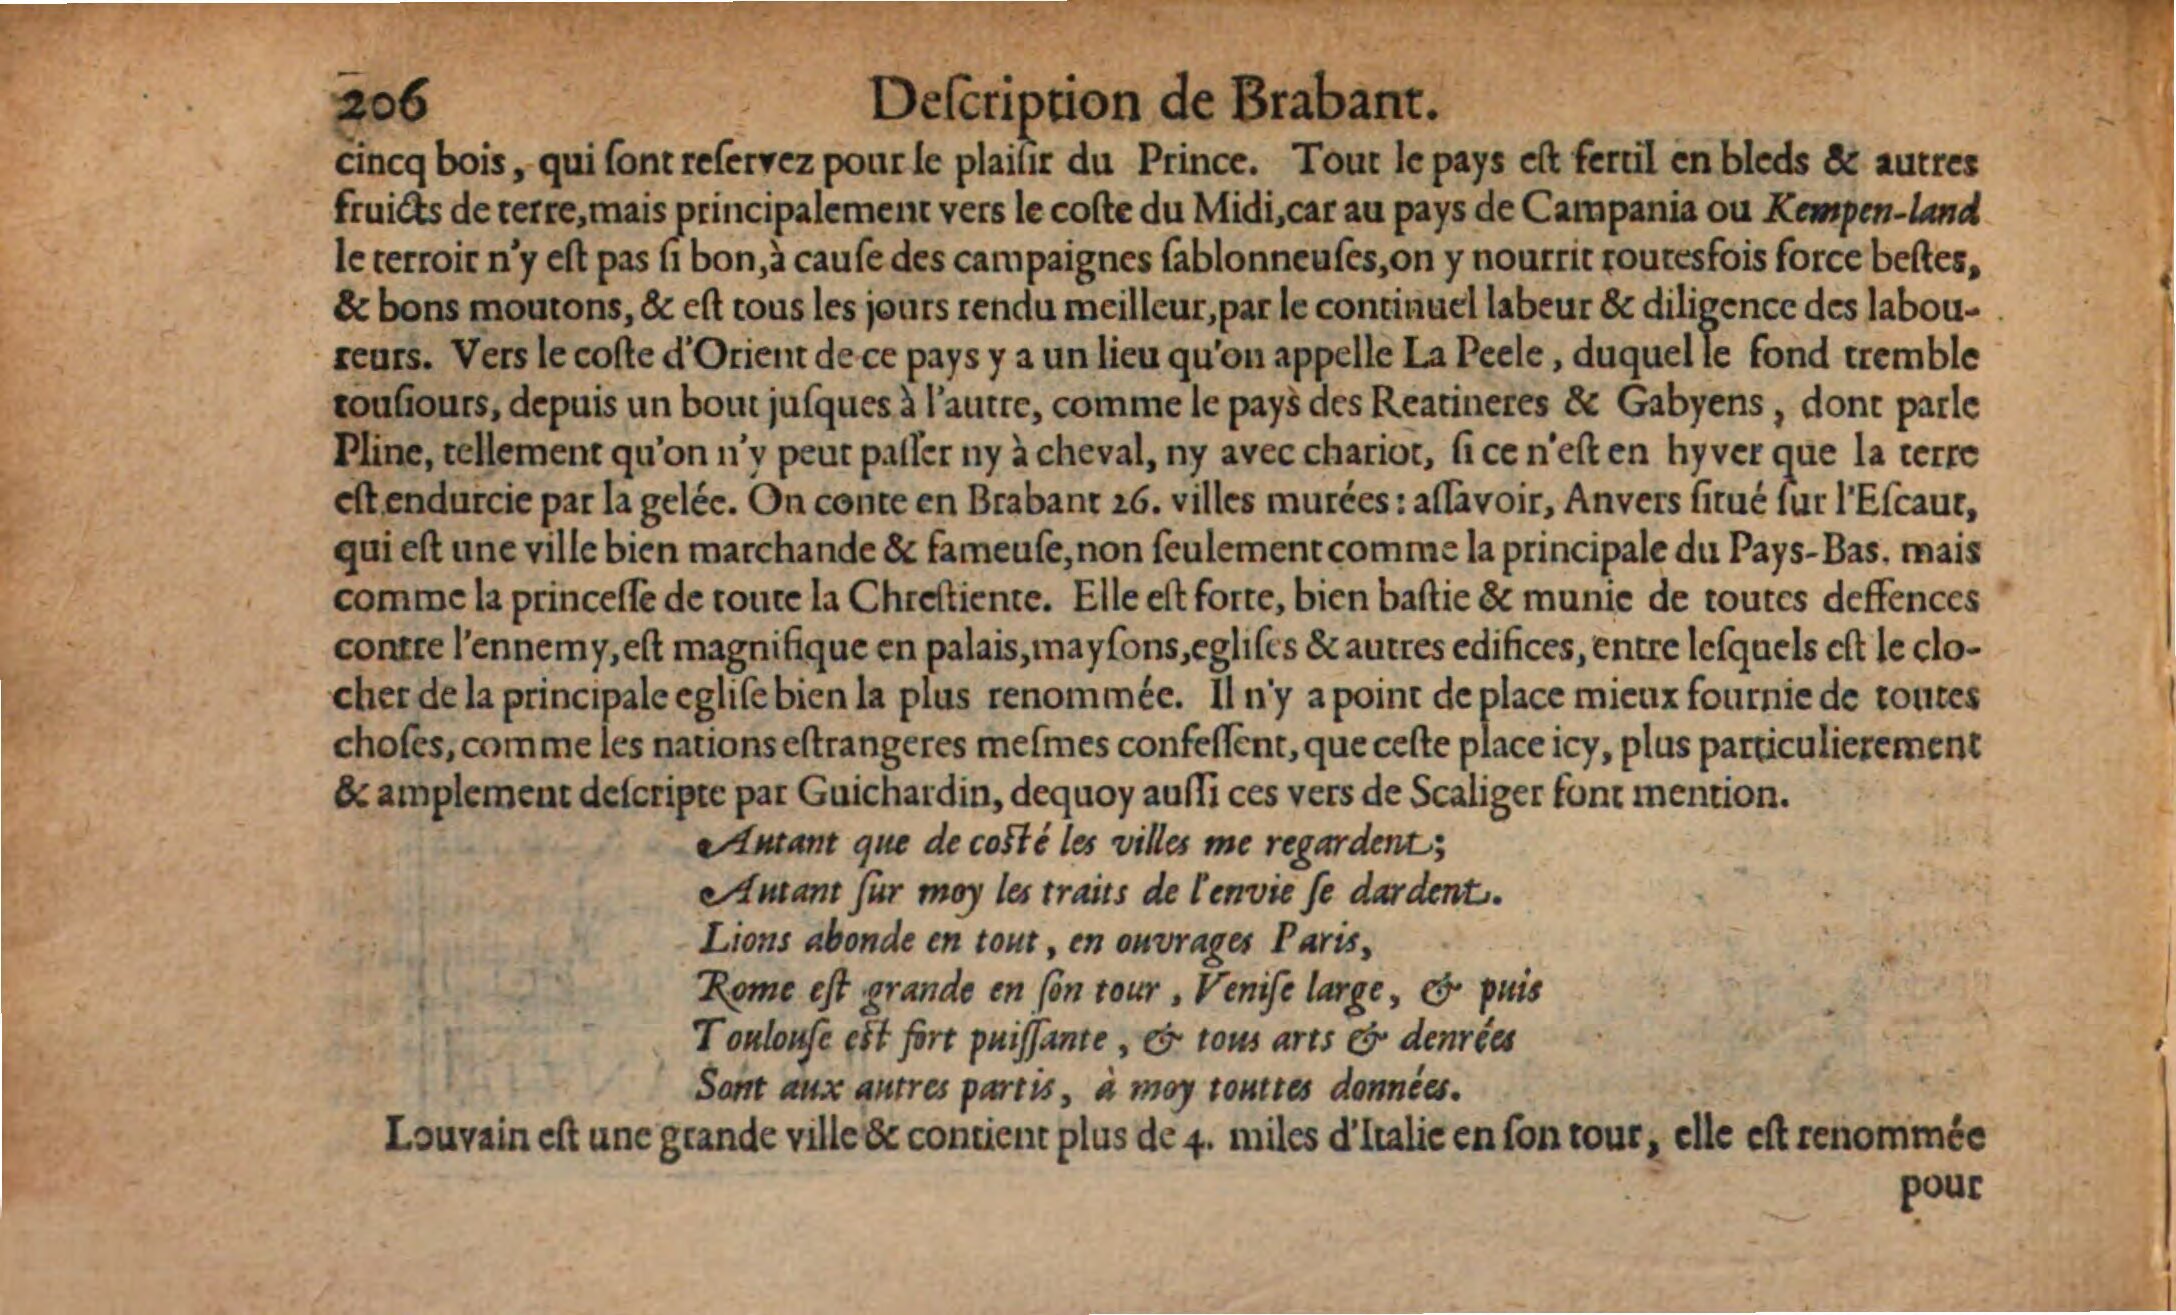 206 Deſcription de Brabant.
cincq bois, qui ſont reſervez pour le plaiſir du Prince. Tout le pays eſt fertil en bleds & autres
fruicts de terre, mais principalement vers le coſte du Midi, car au pays de Campania ou Kempen-land
le terroir n'y eſt pas ſi bon, à cauſe des campaignes ſablonneuſes, on y nourrit toutesfois force beſtes,
& bons moutons, & eſt tous les jours rendu meilleur, par le continuel labeur & diligence des labou-
reurs. Vers le coſte d'Orient de ce pays y a un lieu qu'on appelle La Peele, duquel le fond tremble
touſiours, depuis un bout juſques à l'autre, comme le pays des Reatineres & Gabyens, dont parle
Pline, tellement qu'on n'y peut paſſer ny à cheval, ny avec chariot, ſi ce n'eſt en hyver que la terre
eſt endurcie par la gelée. On conte en Brabant 26. villes murées: aſſavoir, Anvers ſitué ſur l'Eſcaut,
qui eſt une ville bien marchande & fameuſe, non ſeulement comme la principale du Pays-Bas. mais
comme la princeſſe de toute la Chreſtiente. Elle eſt forte, bien baſtie & munie de toutes deffences
contre l'ennemy, eſt magnifique en palais, mayſons, egliſes & autres edifices, entre leſquels eſt le clo-
cher de la principale egliſe bien la plus renommée. Il n'y a point de place mieux fournie de toutes
choſes, comme les nations eſtrangeres meſmes confeſſent, que ceſte place icy, plus particulierement
& amplement deſcripte par Guichardin, dequoy auſſi ces vers de Scaliger font mention.
Autant que de coſté les villes me regardent;
Autant ſur moy les traits de l'envie ſe dardent.
Lions abonde en tout, en ouvrages Paris,
Rome eſt grande en ſon tour, Veniſe large, & puis
Toulouſe eſt fort puiſſante, & tous arts & denrées
Sont aux autres partis, à moy touttes données.
Louvain eſt une grande ville & contient plus de 4. miles d'Italie en ſon tour, elle eſt renommée
pour